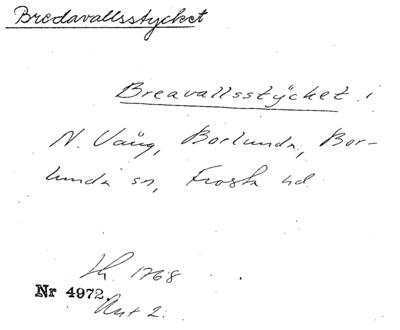 Bredavallsstycket
Breavallsstÿcket i
N. Vång, Borlunda, Bor-
lunda sn, Frosta hd
Lh. 1768
Nr 4972.
Akt 2.